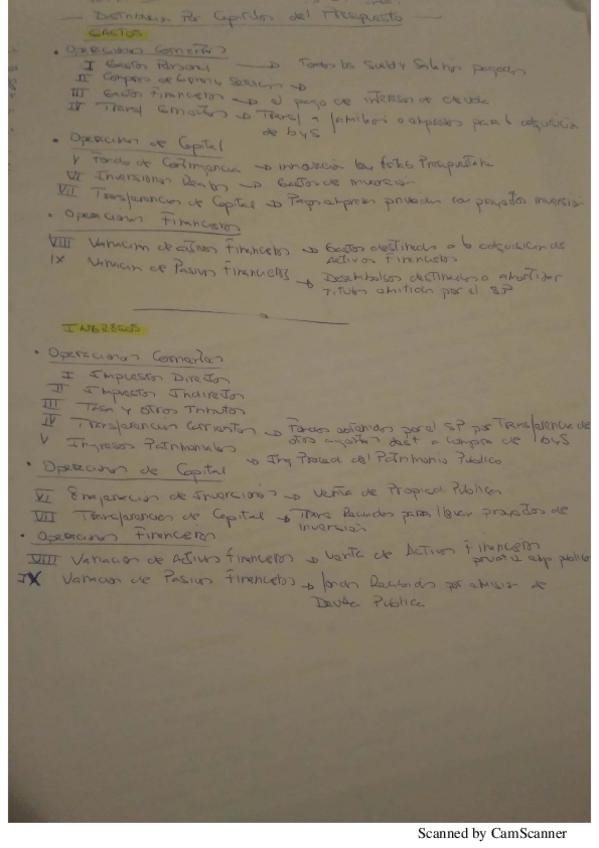 Por Capítulos del Presupuesto
GASTOS
• Operaciones Corrientes
I Gastos Personal → Todos los Sueld y Salarios pagados
II Compras de bienes y Servicios →
III Gastos Financieros → el pago de intereses de deuda
IV Transf Corrientes → Transf a familias o empresas para la adquisición
de byS
• Operaciones de Capital
V Fondo de Contingencia →
VI Inversiones Reales → Gastos de inversión
VII Transferencias de Capital → empresas privadas con proyectos inversión
• Operaciones Financieras
VIII Variación de activos Financieros → Gastos destinados a la adquisición de
Activos Financieros
IX Variación de Pasivos Financieros → Desembolsos destinados a amortizar
títulos emitidos por el SP
INGRESOS
• Operaciones Corrientes
I Impuestos Directos
II Impuestos Indirectos
III Tasas y otros Tributos
IV Transferencias Corrientes → Fondos obtenidos por el SP por Transferencia de
otros agentes dest a compra de byS
V Ingresos Patrimoniales → Ing Proced del Patrimonio Público
• Operaciones de Capital
VI Enajenación de Inversiones → Venta de Propied Públicas
VII Transferencias de Capital → Trans Recibidas para llevar proyectos de
inversión
• Operaciones Financieras
VIII Variación de Activos Financieros → Venta de Activos Financieros
IX Variación de Pasivos Financieros → Fondos Recibidos por emisión de
Deuda Pública
Scanned by CamScanner